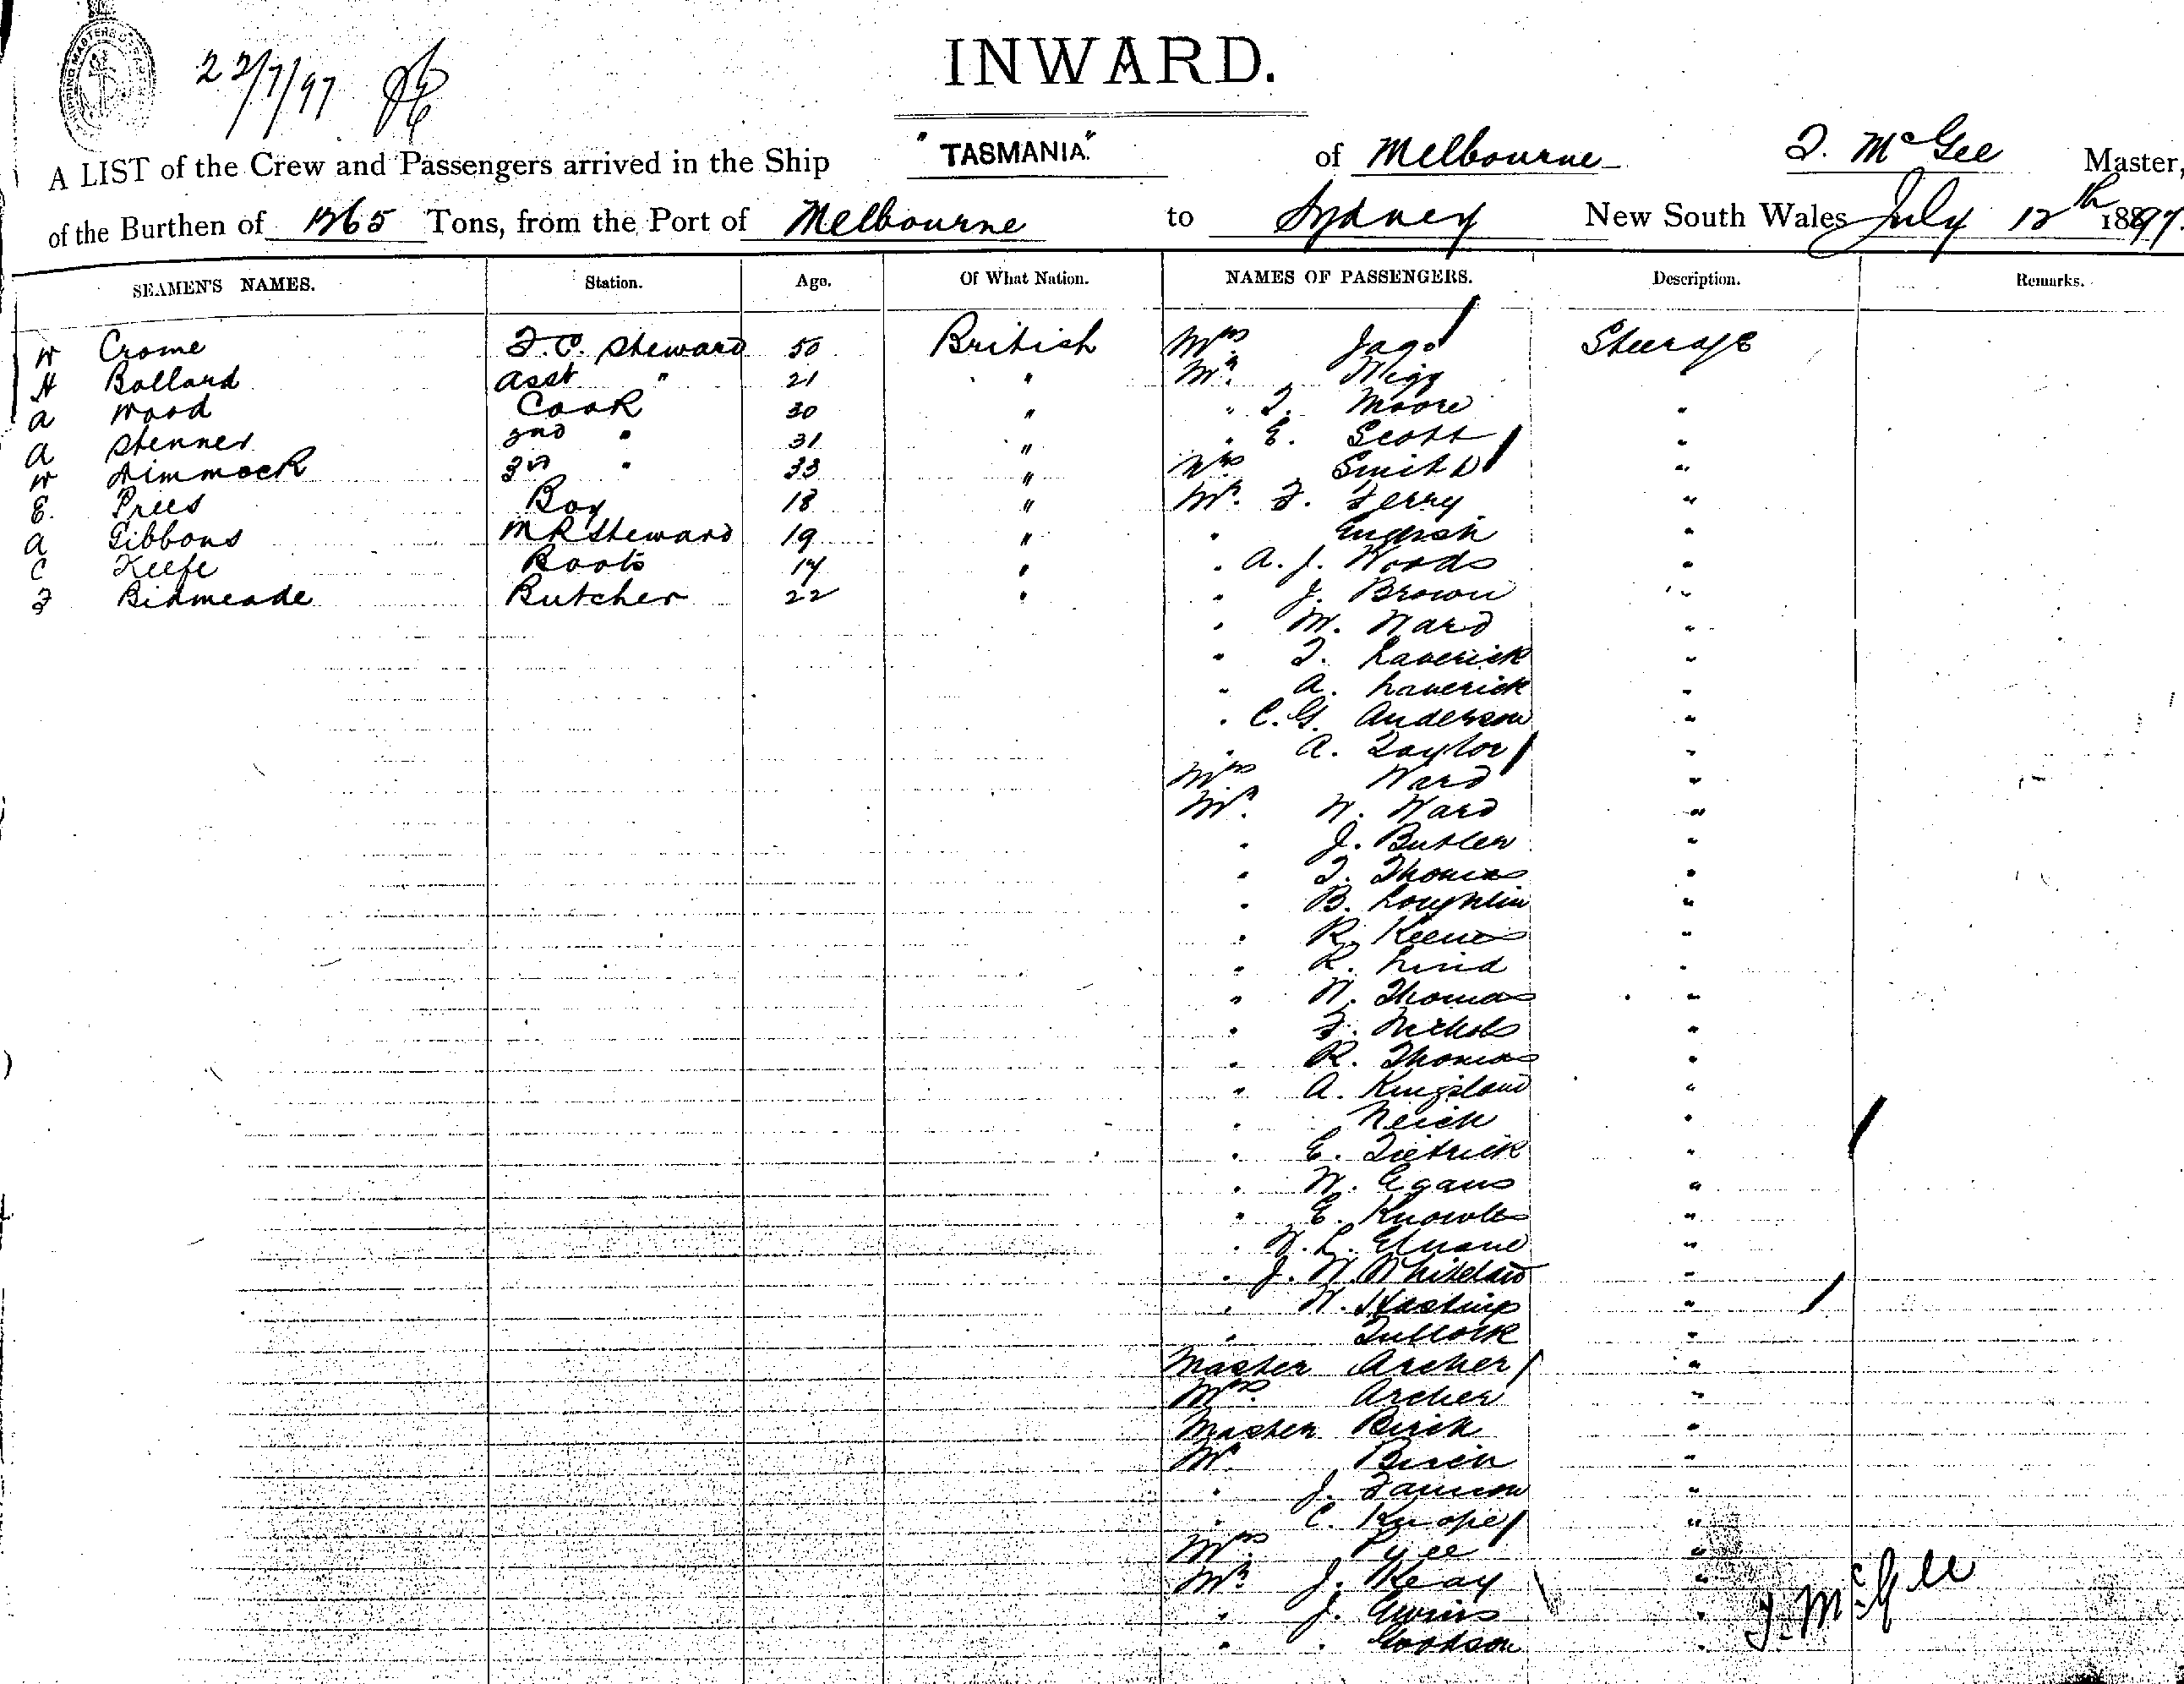 22/7/97
INWARD.
A LIST of the Crew and Passengers arrived in the Ship "TASMANIA" of Melbourne T. McGee Master,
of the Burthen of Tons, from the Port of Melbourne to Sydney New South Wales July 12th 1897.
SEAMEN'S NAMES. Station. Age. Of What Nation. NAMES OF PASSENGERS. Description. Remarks.
W Crome F.C. Steward 50 British Mrs Jago Steerage
H Ballard Asst " 21 " Mr. Migg "
A Wood Cook 30 " " T. Moore "
A Stenner 2nd " 31 " " E. Scott "
W Dimmock 3rd " 33 " Mrs Smith "
E. Prees Boy 18 " Mr. F. Ferry "
A Gibbons M R Steward 19 " " English "
C Keefe Boots 17 " " A. J. Woods "
F Bidmeade Butcher 22 " " J. Brown "
" M. Ward "
" T. Laverick "
" A. Laverick "
" C. G. Anderson "
" A. Taylor "
Mrs Ward "
Mr. W. Ward "
" J. Butler "
" T. Thomas "
" B. Loughlin "
" R. Keene "
" R. Lind "
" W. Thomas "
" F. Nichols "
" R. Thomas "
" A. Kingsland "
" "
" E. Dietrick "
" W. Egans "
" E. Knowles "
" W. L. "
" J. W. Whitelaw "
" W. Hastings "
" Tullock "
Master Archer "
Mrs. Archer "
Master Birch "
Mr Birch "
" J. "
" C. "
Mrs. "
Mr. J. Keay "
" J. Ewins "
" Goodson "
T. McGee